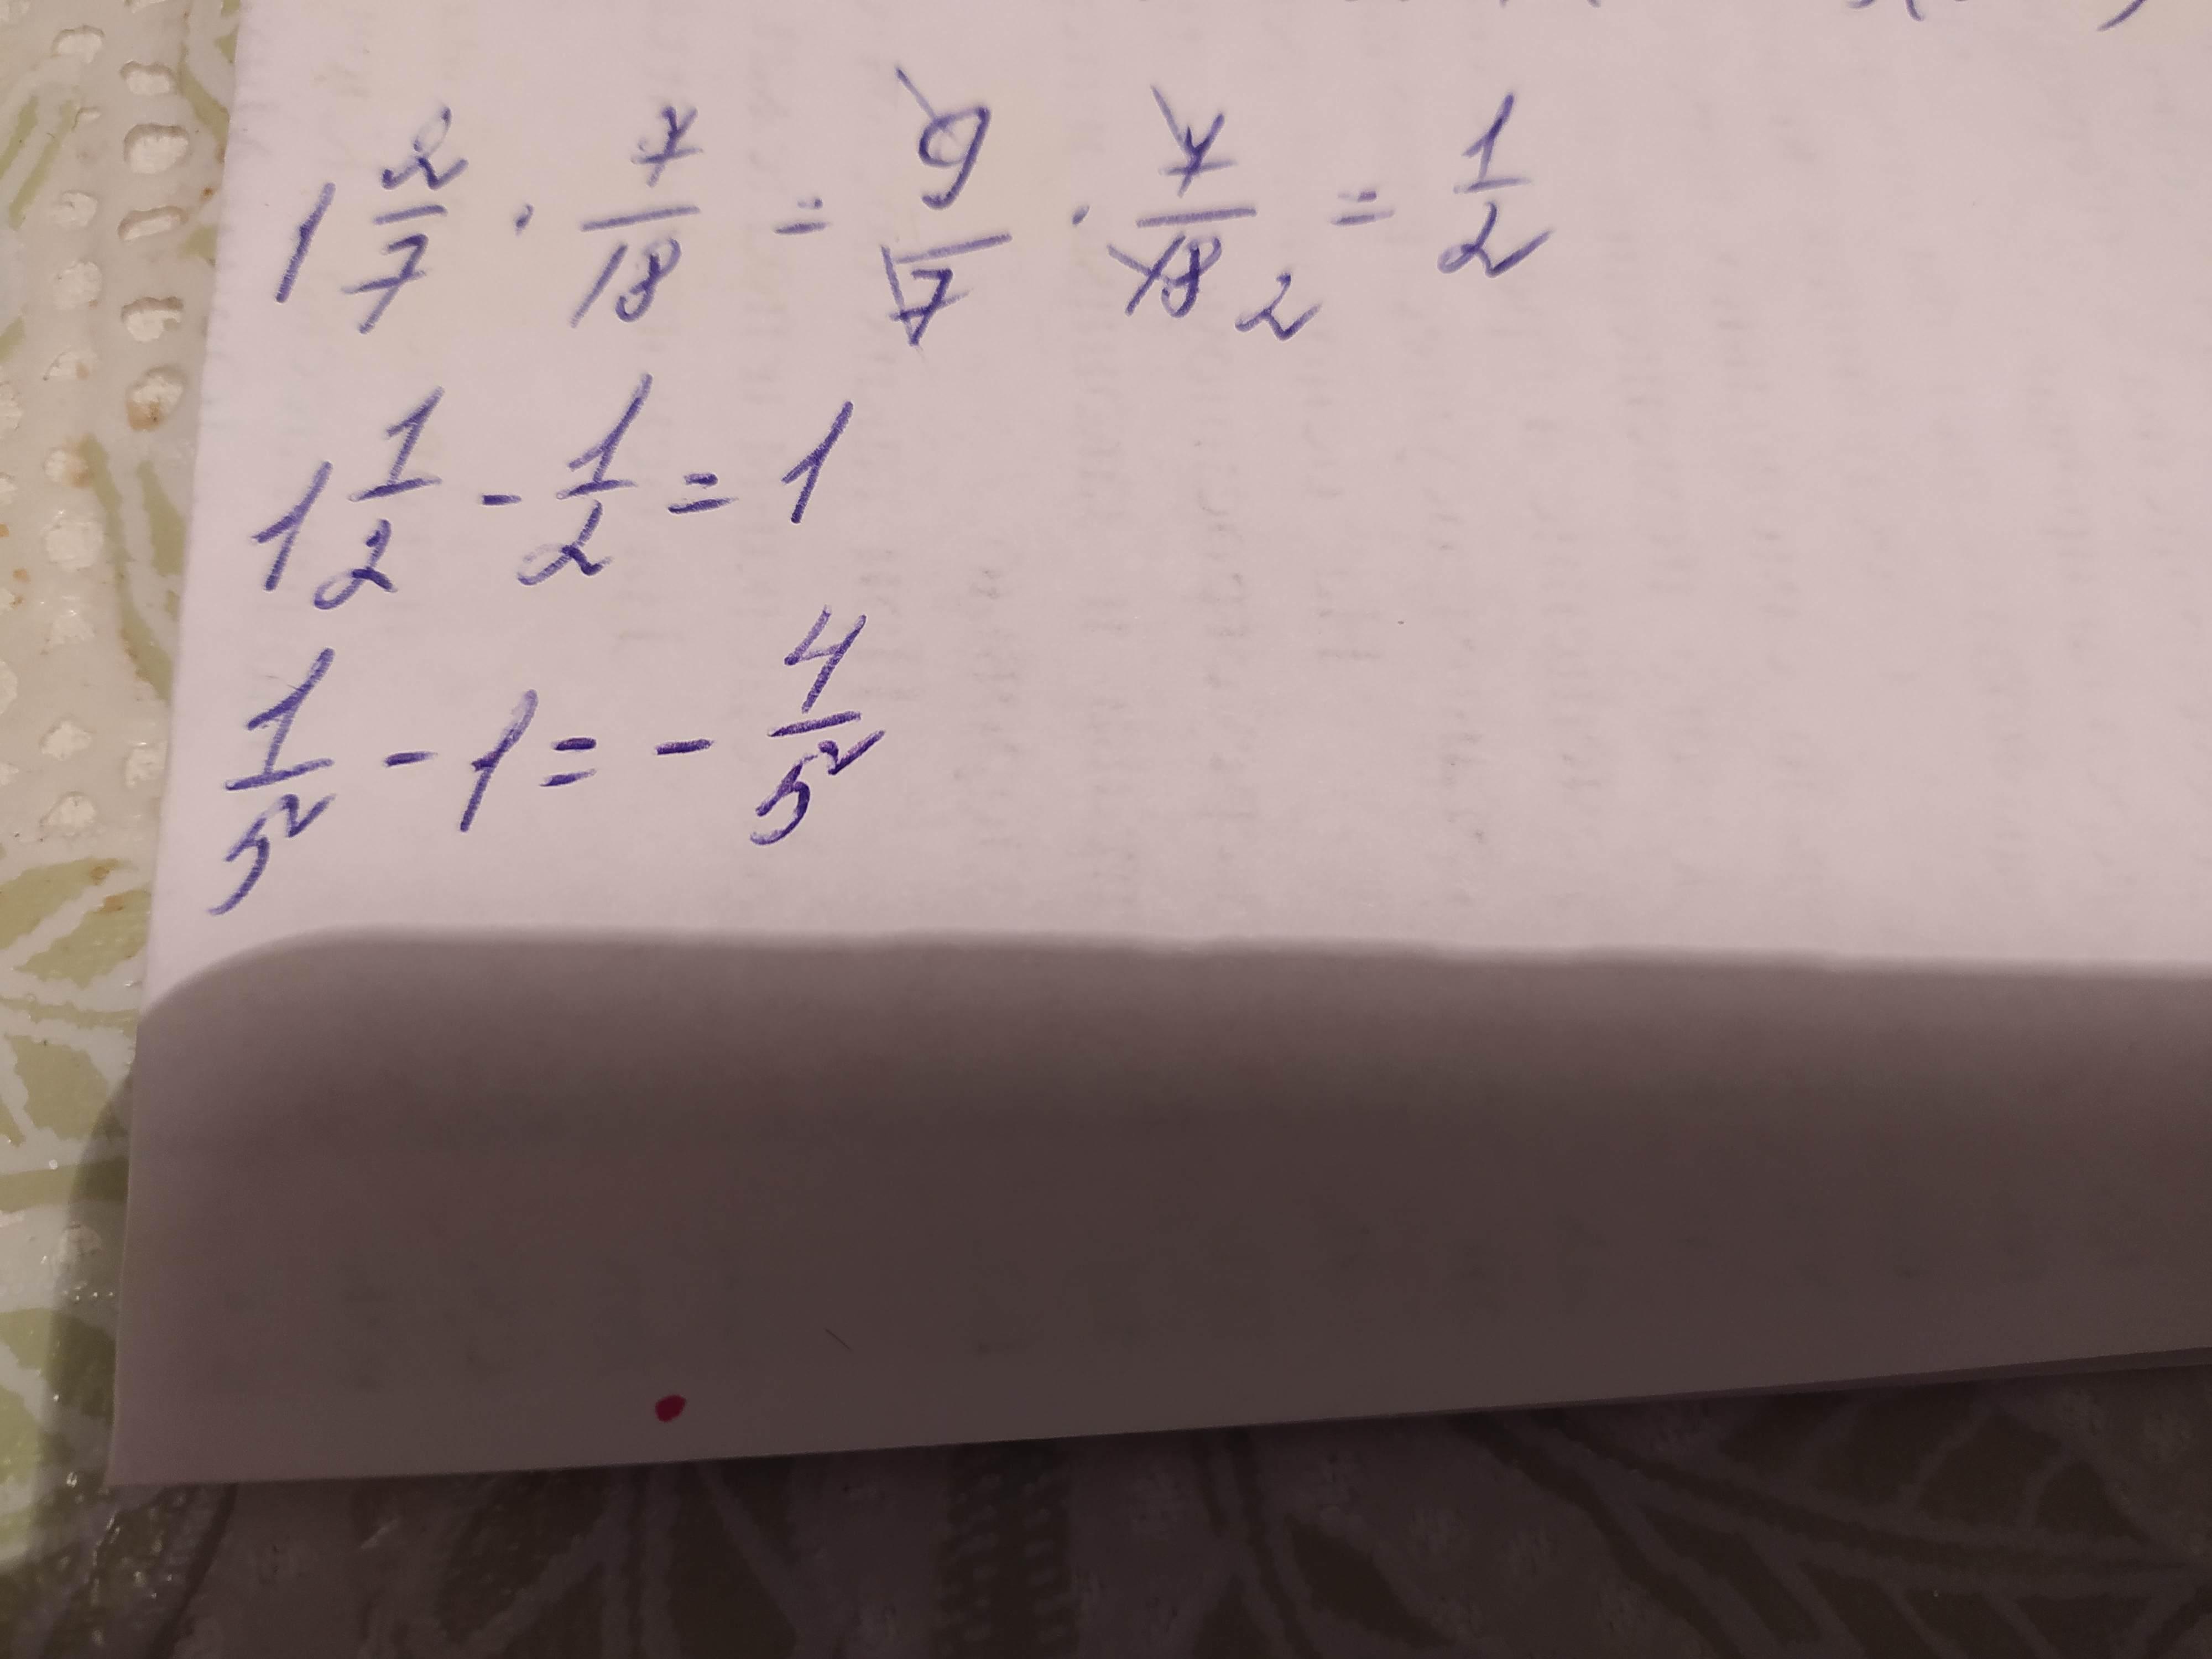 1 2/7 · 7/18 = 9/7 · 7/18 2 = 1/2
1 1/2 - 1/2 = 1
1/5 - 1 = - 4/5